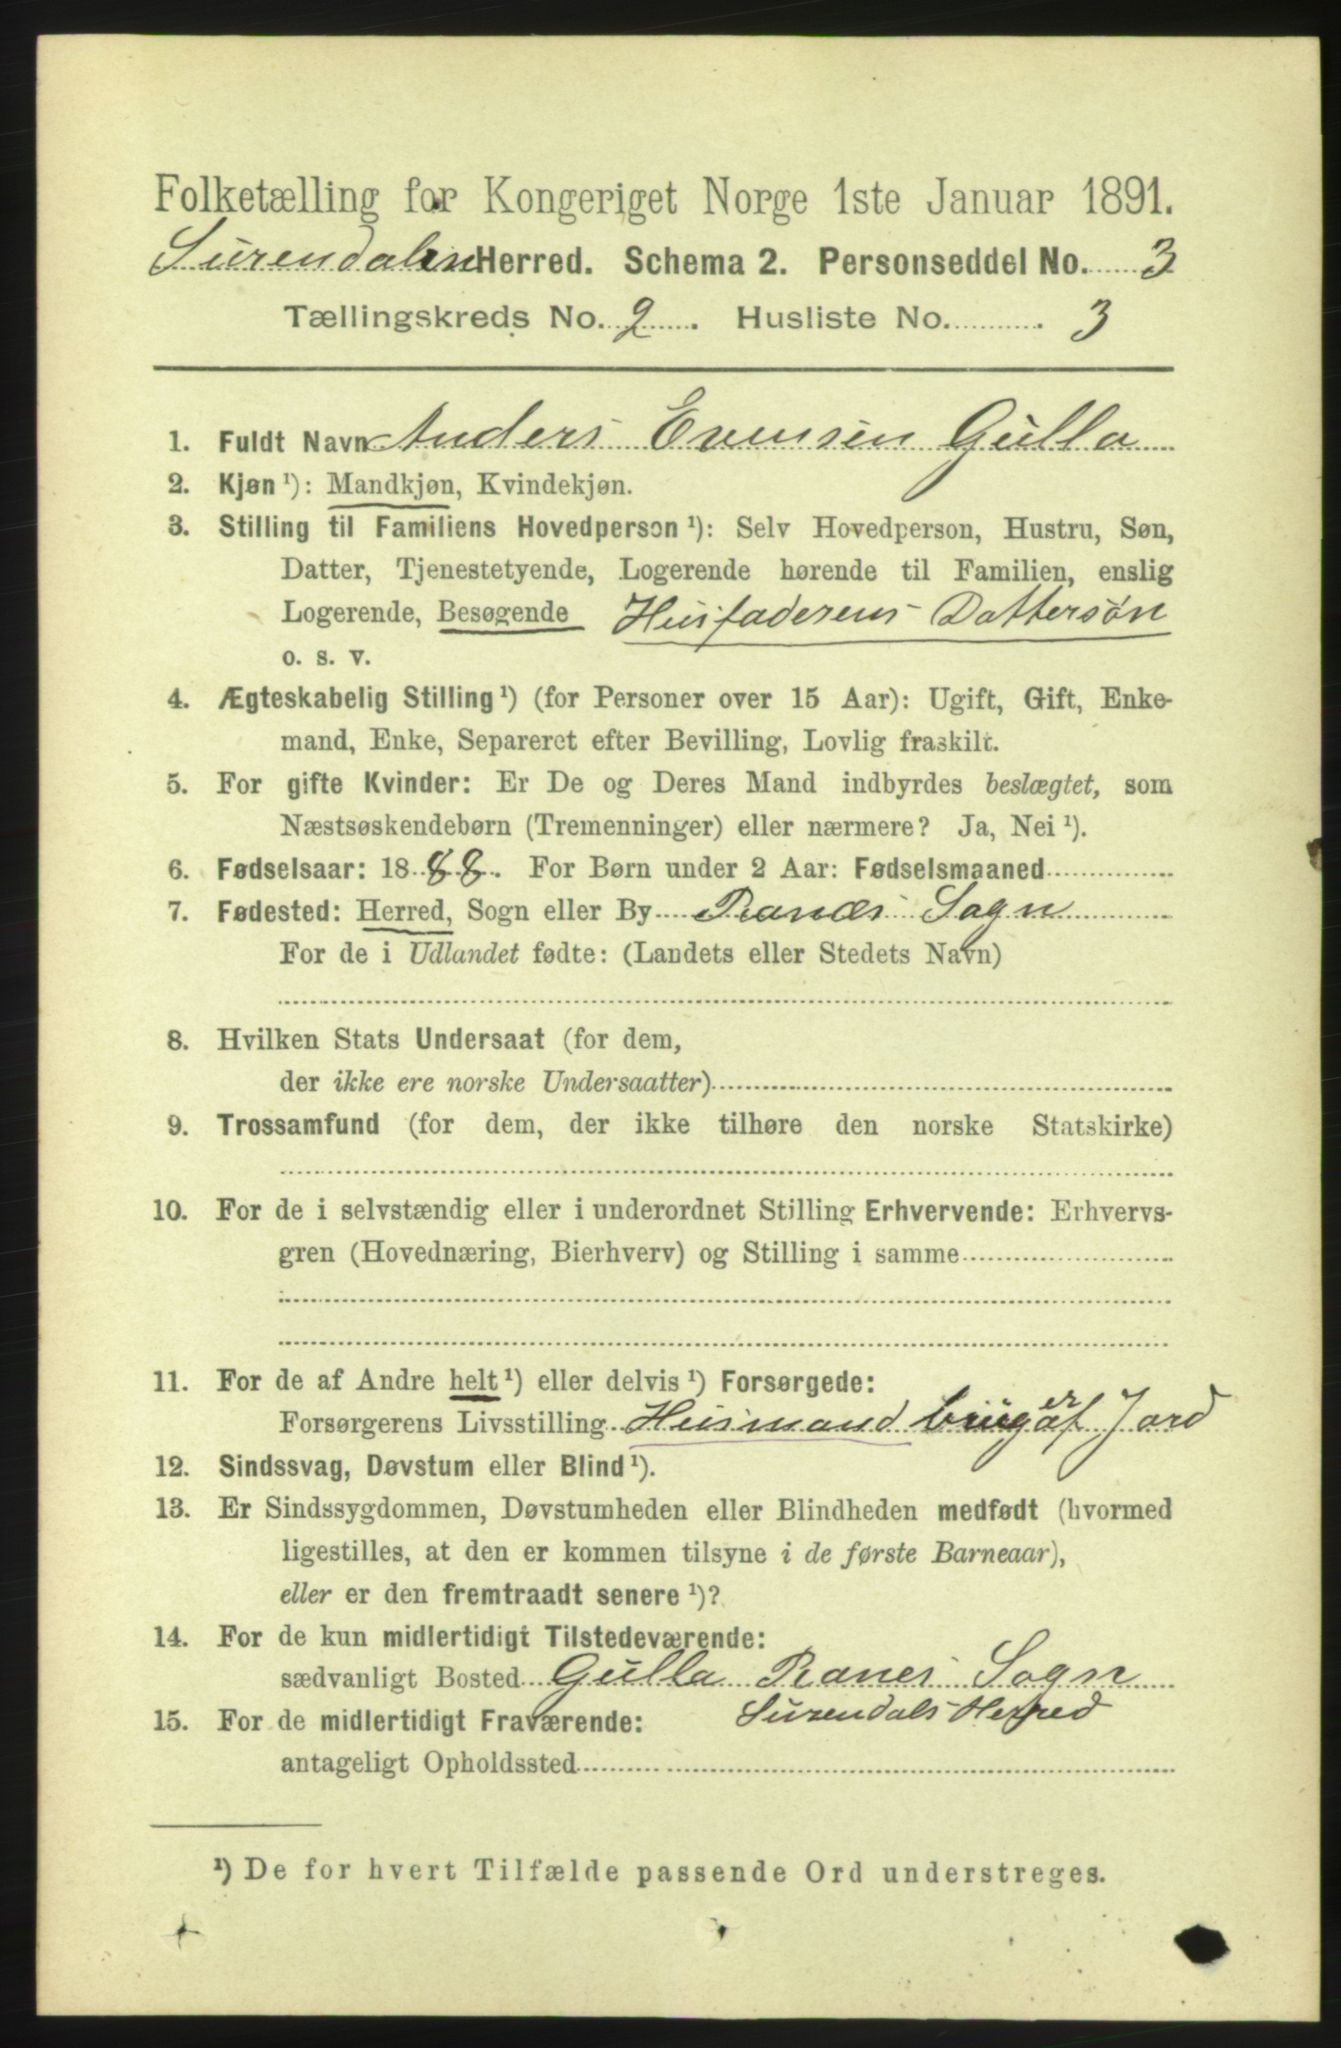 Folketælling for Kongeriget Norge 1ste Januar 1891.
Surendalen Herred. Schema 2. Personseddel No. 3
Tællingskreds No. 2. Husliste No. 3
1. Fuldt Navn Anders Evensen Gulla
2. Kjøn ¹): Mandkjøn, Kvindekjøn.
3. Stilling til Familiens Hovedperson ¹): Selv Hovedperson, Hustru, Søn,
Datter, Tjenestetyende, Logerende hørende til Familien, enslig
Logerende, Besøgende Husfaderens Dattersøn
o. s. v.
4. Ægteskabelig Stilling ¹) (for Personer over 15 Aar): Ugift, Gift, Enke-
mand, Enke, Separeret efter Bevilling, Lovlig fraskilt.
5. For gifte Kvinder: Er De og Deres Mand indbyrdes beslægtet, som
Næstsøskendebørn (Tremenninger) eller nærmere? Ja, Nei ¹).
6. Fødselsaar: 1888. For Børn under 2 Aar: Fødselsmaaned
7. Fødested: Herred, Sogn eller By Ranæs Sogn
For de i Udlandet fødte: (Landets eller Stedets Navn)
8. Hvilken Stats Undersaat (for dem,
der ikke ere norske Undersaatter)
9. Trossamfund (for dem, der ikke tilhøre den norske Statskirke)
10. For de i selvstændig eller i underordnet Stilling Erhvervende: Erhvervs-
gren (Hovednæring, Bierhverv) og Stilling i samme
11. For de af Andre helt ¹) eller delvis ¹) Forsørgede:
Forsørgerens Livsstilling Husmand bruger af Jord
12. Sindssvag, Døvstum eller Blind ¹).
13. Er Sindssygdommen, Døvstumheden eller Blindheden medfødt (hvormed
ligestilles, at den er kommen tilsyne i de første Barneaar),
eller er den fremtraadt senere ¹)?
14. For de kun midlertidigt Tilstedeværende:
sædvanligt Bosted Gulla Ranes Sogn
Surendals Herred
15. For de midlertidigt Fraværende:
antageligt Opholdssted
¹) De for hvert Tilfælde passende Ord understreges.